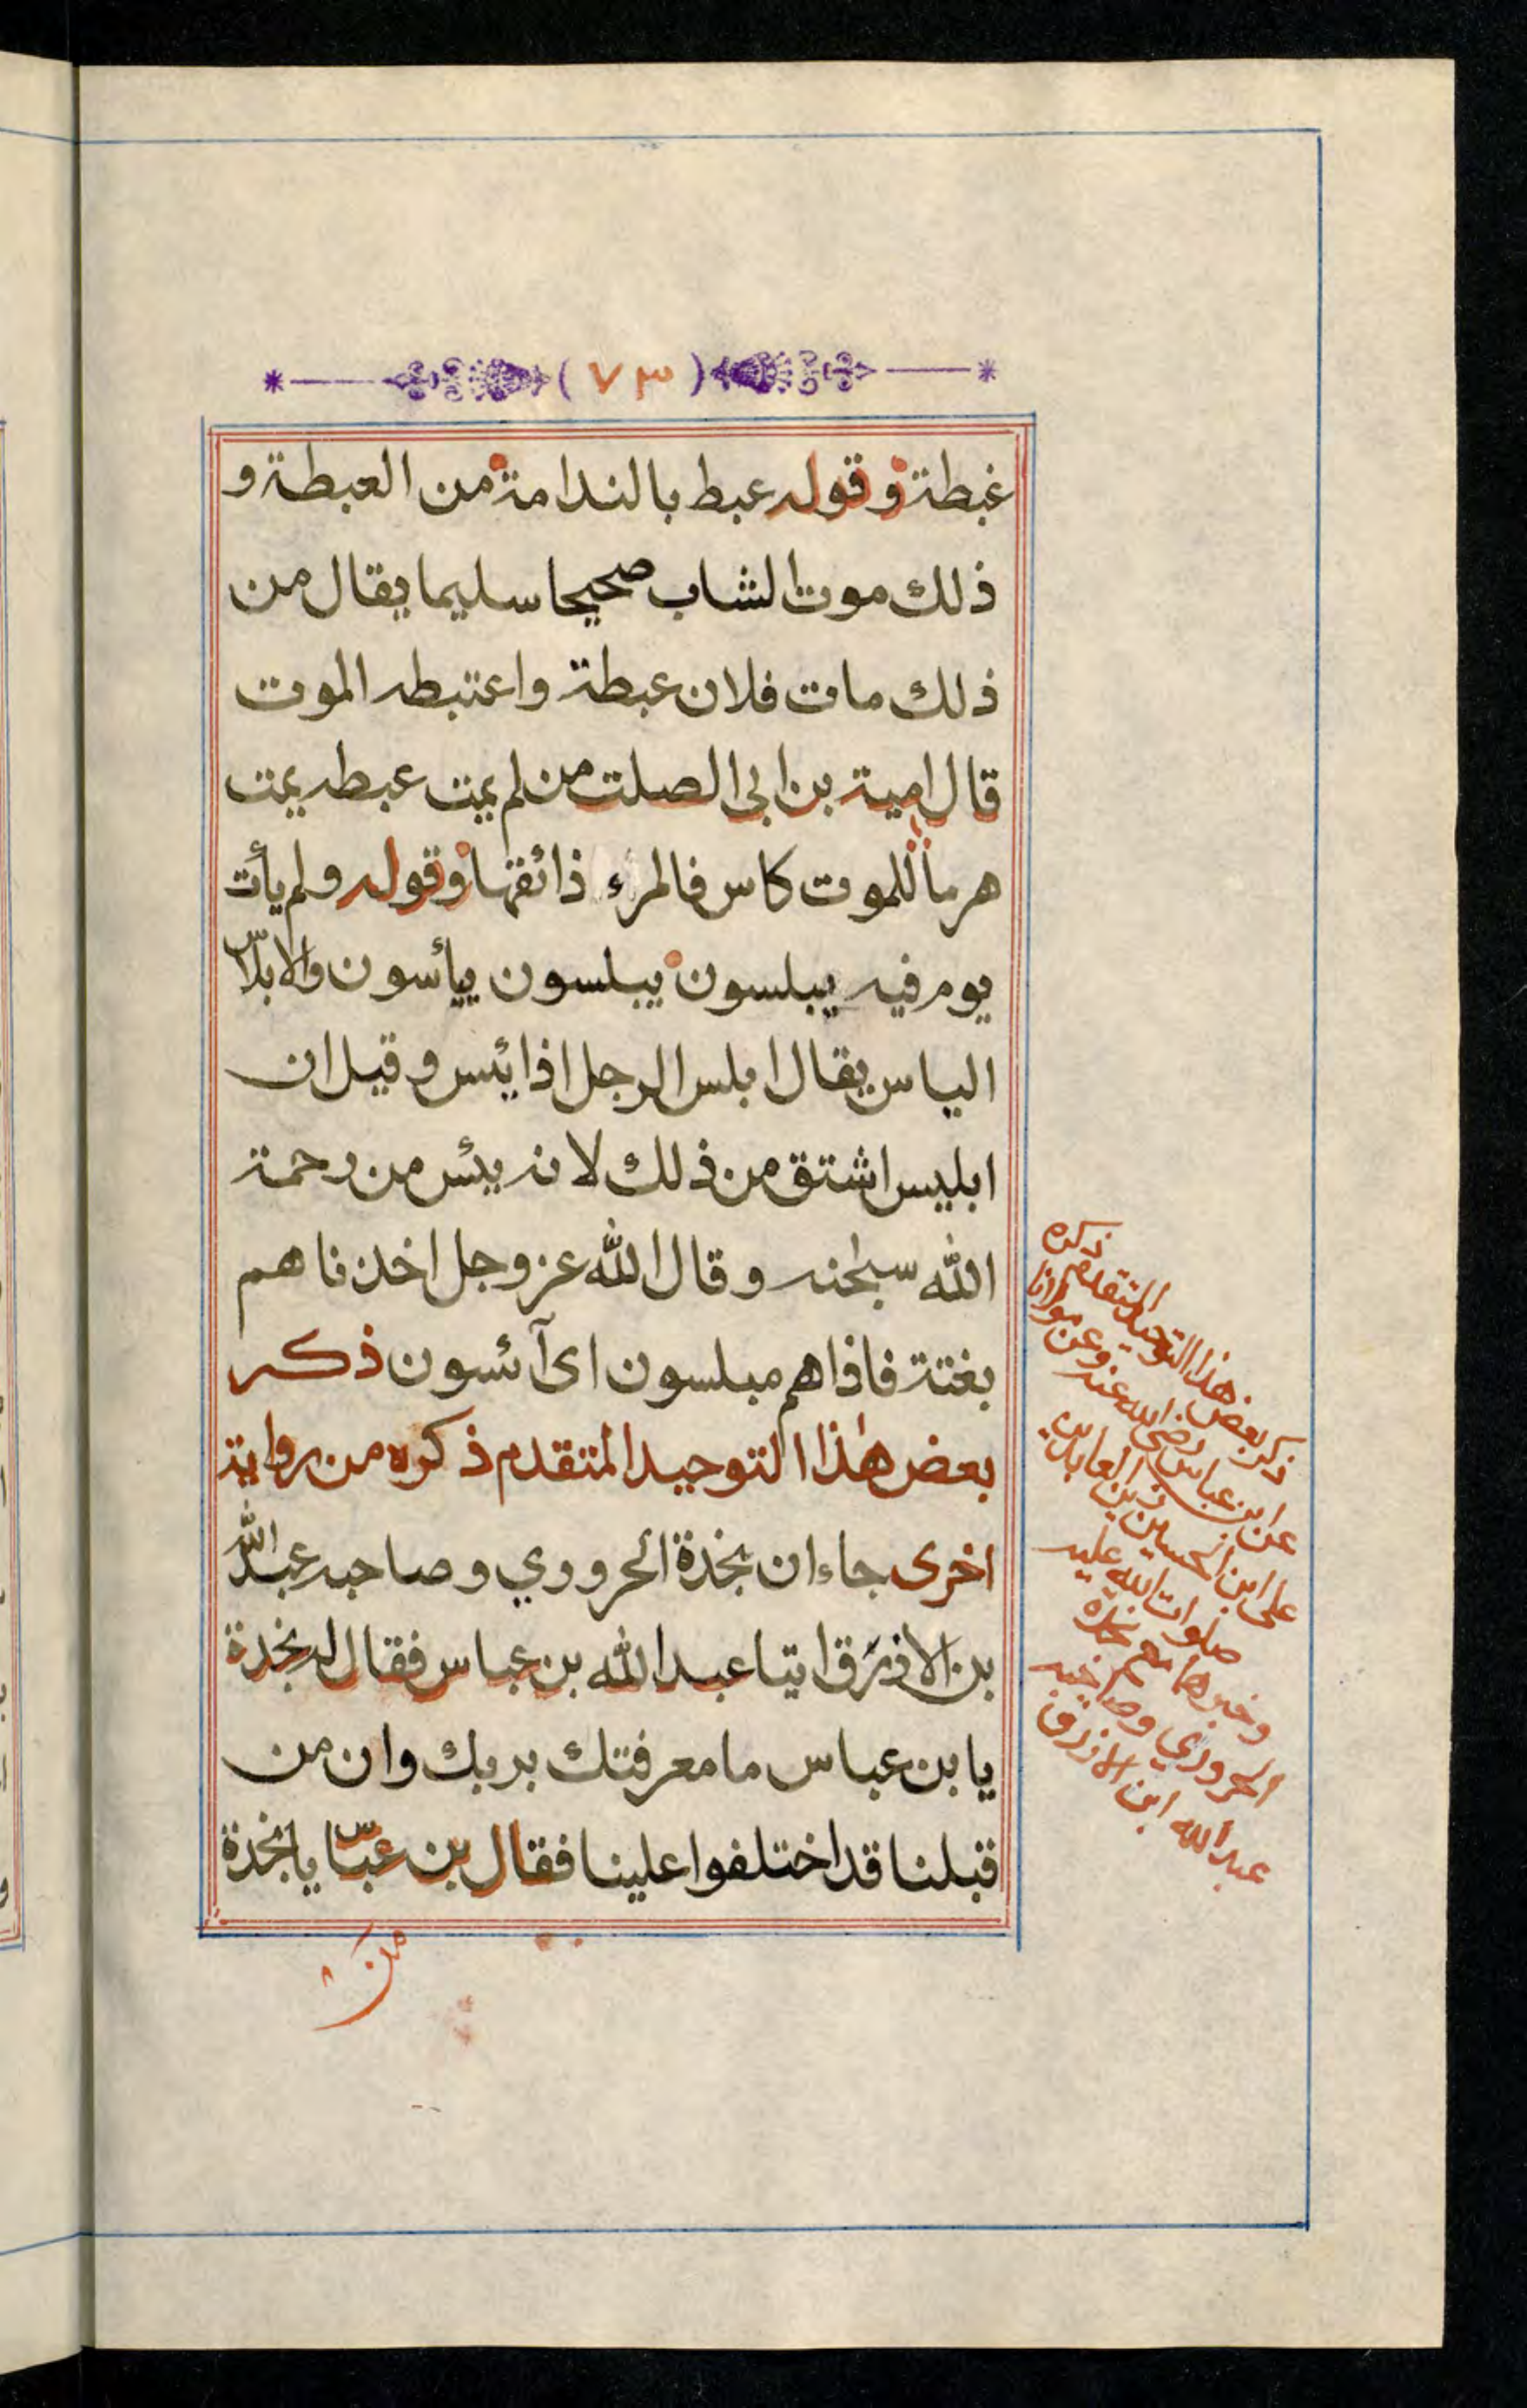 (٧٣)
غبطة وقوله عبط بالندامة من العبطة و
ذلك موت الشاب صحيحا سليما يقال من
ذلك مات فلان عبطة واعتبطه الموت
قال امية بن ابى الصلت من لم يمت عبطه يمت
هرماً للموت كاس فالمرء ذائقها وقوله ولم يأت
يوم فيه يبلسون يبلسون ييأسون والابلاس
الياس يقال ابلس الرجل اذا يئس وقيل ان
ابليس اشتق من ذلك لانه يئس من رحمة
الله سبحنه وقال الله عز وجل اخذناهم
بغتة فاذاهم مبلسون اى آئسون ذكر
بعض هذا التوحيد المتقدم ذكره من رواية
اخرى جاء ان نجدة الحروري وصاحبه عبدالله
بن الازرق اتيا عبدالله بن عباس فقال له نجدة
يا بن عباس ما معرفتك بربك وان من
قبلنا قد اختلفوا علينا فقال بن عباس يا نجدة
من
ذكر بعض هذا التوحيد المتقدم ذكره
عن ابن عباس رضي الله عنه وعن مولانا
على ابن الحسين زين العابدين
صلوات الله عليه
وخبرهما مع نجدة
الحروري وصاحبه
عبدالله ابن الازرق